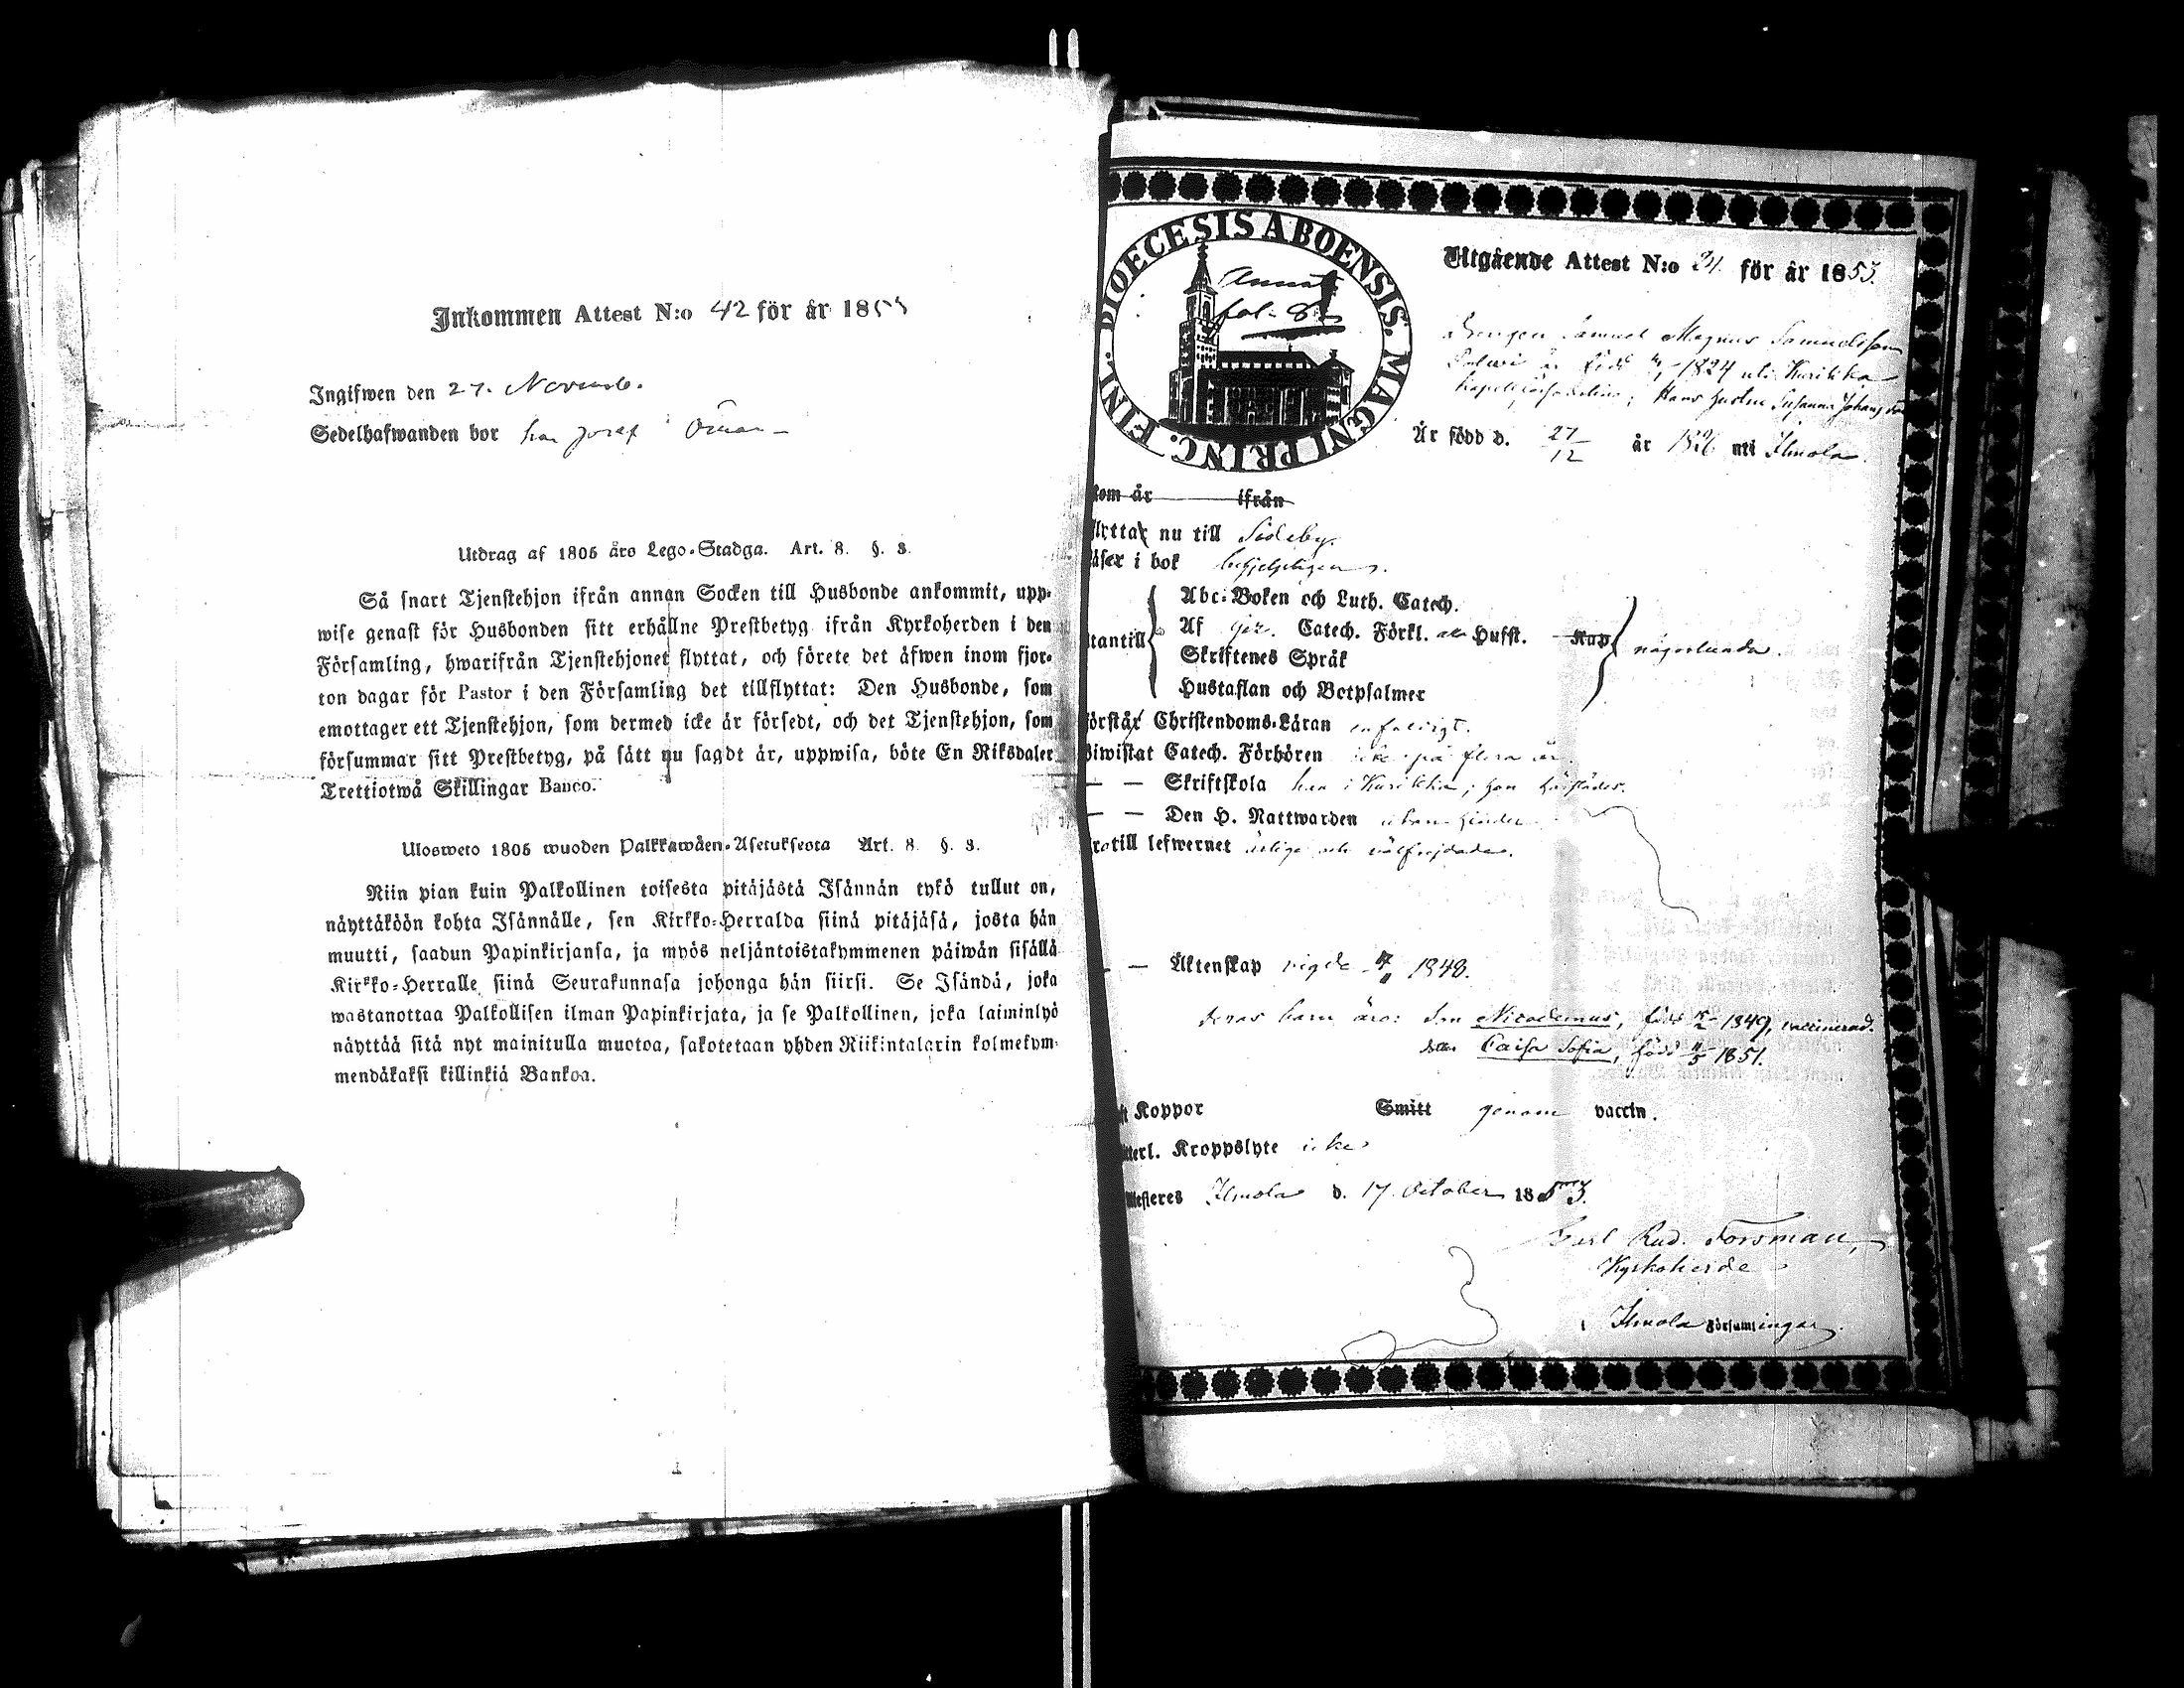 Inkommen Attest N:o 42 för år 185
Ingifwen den 27. Novemb.
Sedelhafwanden bor hos Josef i Öman
Utdrag af 1805 års Lego-Stadga. Art. 8. §. 3.
Så snart Tjenstehjon ifrån annan Socken till Husbonde ankommit, upp-
wise genast för Husbonden sitt erhållne Prestbetyg ifrån Kyrkoherden i den
Församling, hwarifrån Tjenstehjonet flyttat, och förete det äfwen inom fjor-
ton dagar för Pastor i den Församling det tillflyttat: Den Husbonde, som
emottager ett Tjenstehjon, som dermed icke är försedt, och det Tjenstehjon, som
försummar sitt Prestbetyg, på sätt nu sagdt är, uppwisa, böte En Riksdaler
Trettiotwå Skillingar Banco.
Ulosweto 1805 wuoden Palkkawäen-Asetuksesta Art. 8. §. 3.
Niin pian kuin Palkollinen toisesta pitäjästä Isännän tykö tullut on,
näyttäköön kohta Isännälle, sen Kirkko-Herralda siinä pitäjäsä, josta hän
muutti, saadun Papinkirjansa, ja myös neljäntoistakymmenen päiwän sisällä
Kirkko-Herralle siinä Seurakunnasa johonga hän siirsi. Se Isändä, joka
wastanottaa Palkollisen ilman Papinkirjata, ja se Palkollinen, joka laiminlyö
näyttää sitä nyt mainitulla muotoa, sakotetaan yhden Riikintalarin kolmekym-
mendäkaksi killinkiä Bankoa.
DIOECESIS ABOENSIS. MAGNI PRINC. FINL.
fol. 8
Utgående Attest N:o 31. för år 1853.
Drengen Samuel Magnus Samuelsson
är född 1824 uti Kurikka
Hans hustru Susanna Johansd:r
Är född d. 27/12 år 18 uti Ilmola.
kom år ifrån
flyttar nu till Sideby.
läser i bok
Abc-Boken och Luth. Catech.
Af Catech. Förkl. Husst. Kap
utantill
Skriftenes Språk
Hustaflan och Botpsalmer
någorlunda.
förstår Christendoms-Läran enfaldigt.
Biwistat Catech. Förhören icke på flera år.
— — Skriftskola han i Kurikka; hon härstädes.
— — Den H. Nattwarden utan hinder
till lefwernet ärlige och välfrejdade.
— — Äktenskap vigde 1848.
deras barn äro: son Nicodemus, född 1849, vaccinerad.
dotter Caisa Sofia, född 11/5 1851.
Koppor Smitt genom vaccin.
Kroppslyte icke
Attesteres Ilmola d. 17 October 1853.
Carl Rud. Forsman,
Kyrkoherde
i Ilmola församlingar.